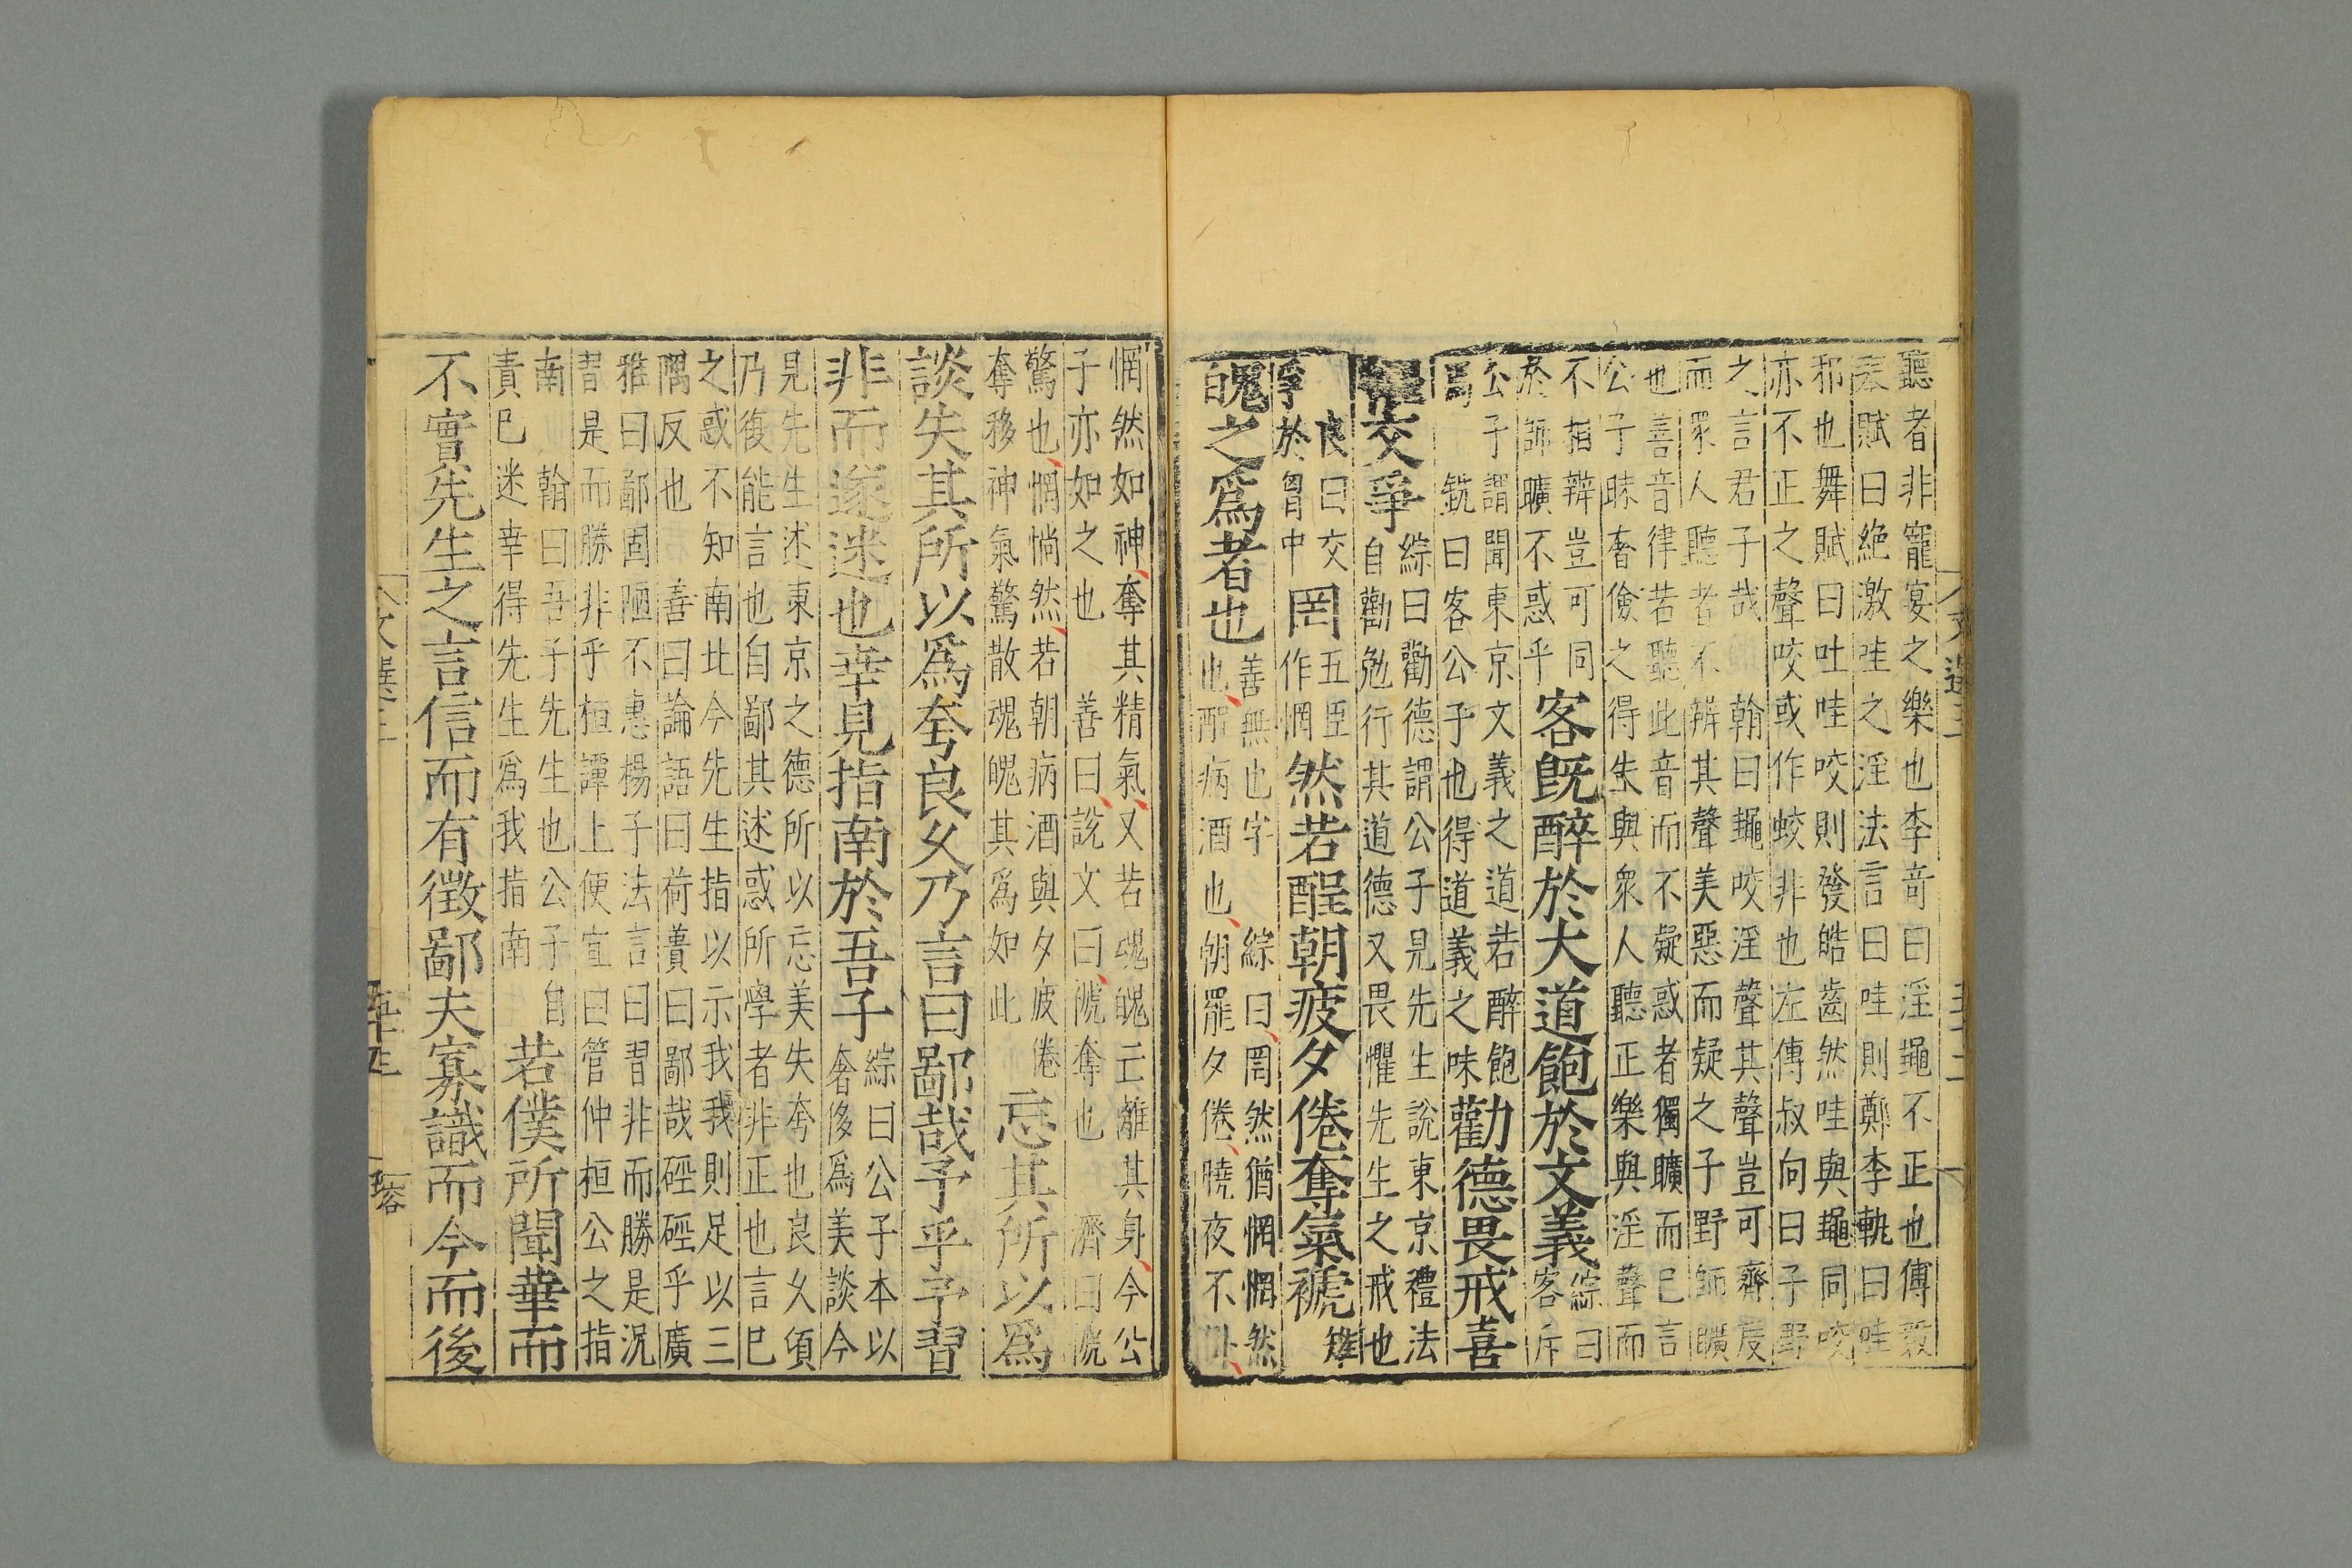 聽者非寵宴之樂也李竒曰淫䵷不正也傅毅
賦曰絶激哇之淫法言曰哇則鄭李軌曰哇
邪也舞賦曰吐哇咬則發皓齒然哇與䵷同咬
亦不正之聲咬或作蛟非也左傳叔向曰子野
之言君子哉 翰曰䵷咬淫聲其聲豈可齊度
而衆人聽者不辨其聲美惡而疑之子野師曠
也善音律若聽此音而不疑惑者獨曠而已言
公子昧奢儉之得失與衆人聽正樂與淫聲而
不指辨豈可同
於師曠不惑乎
客旣醉於大道飽於文義
綜曰
客斥
公子謂聞東京文義之道若醉飽
銑曰客公子也得道義之味
勸德畏戒喜
交爭
綜曰勸德謂公子見先生說東京禮法
自勸勉行其道德又畏懼先生之戒也
良曰交
爭於胷中
罔
五臣
作惘
然若酲朝疲夕倦奪氣褫
雉
魄之爲者也
善無也字 綜曰罔然猶惘惘然
也酲病酒也朝罷夕倦曉夜不卧
惘然如神奪其精氣又若魂魄亡離其身今公
子亦如之也 善曰說文曰褫奪也 濟曰褫
驚也惘惝然若朝病酒與夕疲倦
奪移神氣驚散魂魄其爲如此
忘其所以爲
談失其所以爲夸良乆乃言曰鄙哉予乎予習
非而遂迷也幸見指南於吾子
綜曰公子本以
奢侈爲美談今
見先生述東京之德所以忘美失夸也良乆傾
乃復能言也自鄙其述惑所學者非正也言已
之惑不知南北今先生指以示我我則足以三
隅反也 善曰論語曰荷蕢曰鄙哉硜硜乎廣
雅曰鄙固陋不惠楊子法言曰習非而勝是況
習是而勝非乎桓譚上便宜曰管仲桓公之指
南 翰曰吾子先生也公子自
責已迷幸得先生爲我指南
若僕所聞華而
不實先生之言信而有徵鄙夫寡識而今而後